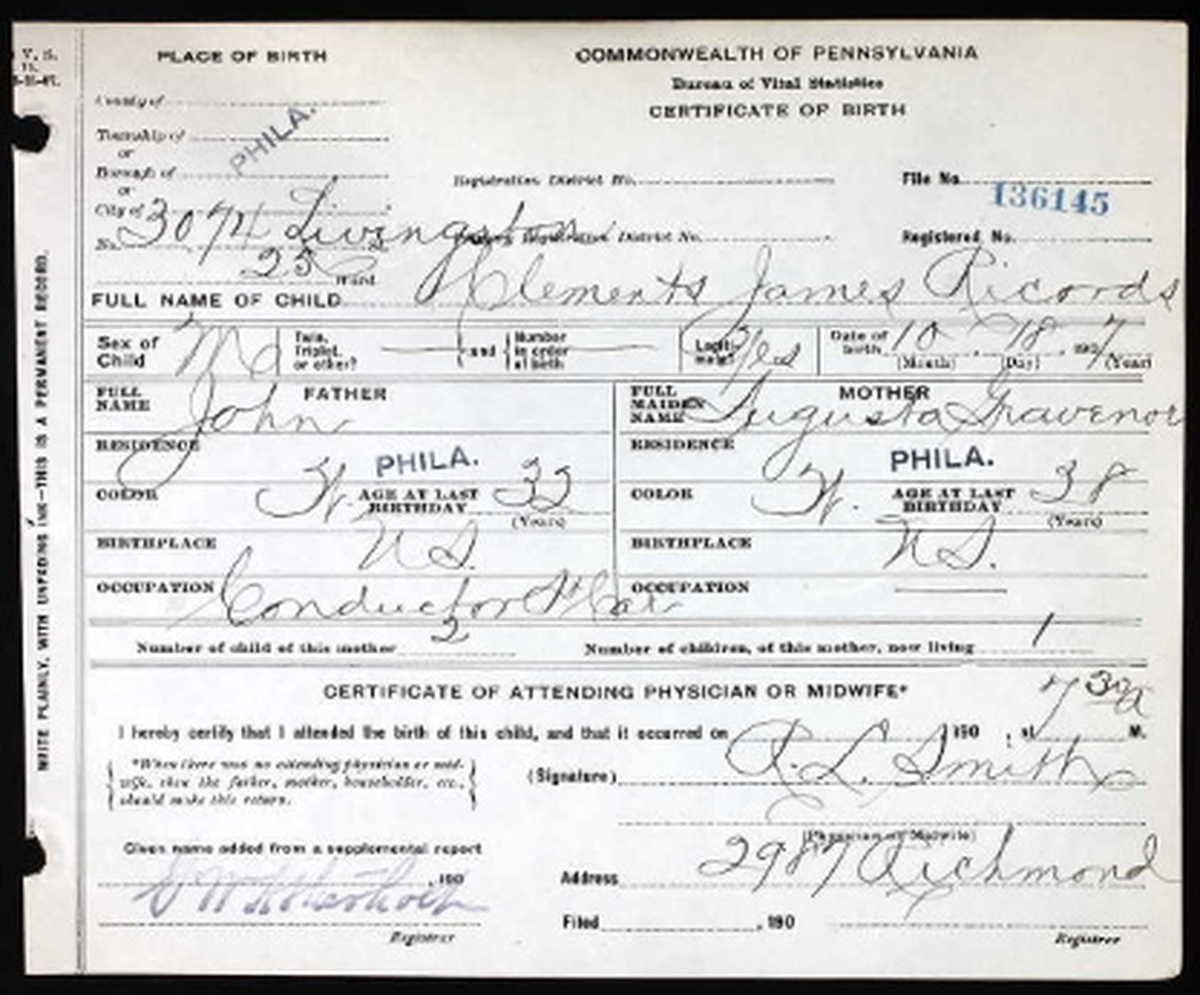 V. S.
PLACE OF BIRTH
COMMONWEALTH OF PENNSYLVANIA
Bureau of Vital Statistics
CERTIFICATE OF BIRTH
County of
Township of
or
Borough of
or
PHILA.
City of
No. 3074 Livingston
25 Ward
Registration District No.
Primary Registration District No.
File No. 136145
Registered No.
FULL NAME OF CHILD Clements James Ricords
Sex of Child M
Twin, Triplet, or other?
and
Number in order of birth
Legitimate? Yes
Date of birth 10 18 1907
(Month) (Day) (Year)
FATHER
FULL NAME John
RESIDENCE PHILA.
COLOR W. AGE AT LAST BIRTHDAY 32
(Years)
BIRTHPLACE U.S.
OCCUPATION Conductor St Car
MOTHER
FULL MAIDEN NAME Augusta Gravenor
RESIDENCE PHILA.
COLOR W. AGE AT LAST BIRTHDAY 38
(Years)
BIRTHPLACE U.S.
OCCUPATION
Number of child of this mother 2
Number of children, of this mother, now living 1
CERTIFICATE OF ATTENDING PHYSICIAN OR MIDWIFE*
I hereby certify that I attended the birth of this child, and that it occurred on , 190 , at 7 30 a M.
*When there was no attending physician or mid-
wife, then the father, mother, householder, etc.,
should make this return.
(Signature) R. L. Smith
(Physician or Midwife)
Given name added from a supplemental report
, 190
Registrar
Address 2987 Richmond
Filed , 190
Registrar
WRITE PLAINLY, WITH UNFADING INK—THIS IS A PERMANENT RECORD.